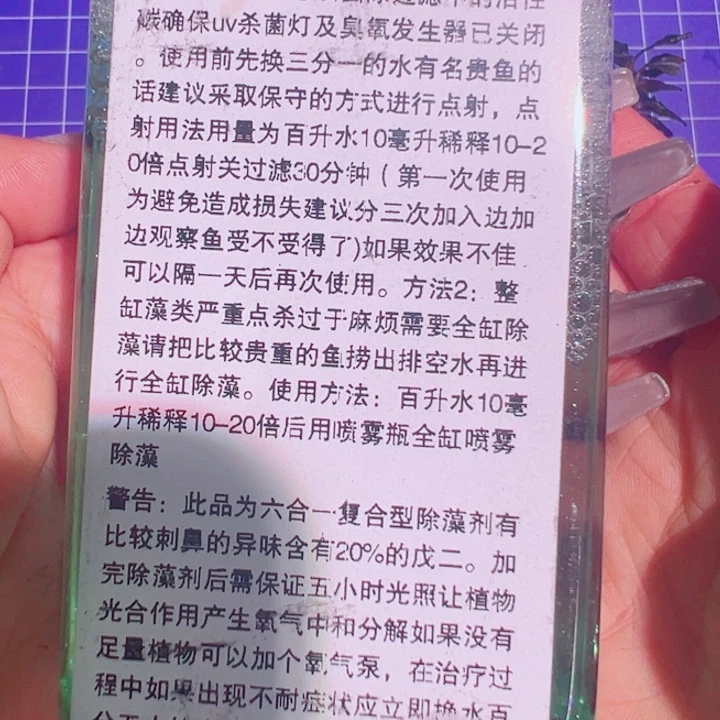 碳确保uv杀菌灯及臭氧发生器已关闭
。使用前先换三分一的水有名贵鱼的
话建议采取保守的方式进行点射，点
射用法用量为百升水10毫升稀释10-2
0倍点射关过滤30分钟（第一次使用
为避免造成损失建议分三次加入边加
边观察鱼受不受得了)如果效果不佳
可以隔一天后再次使用。方法2：整
缸藻类严重点杀过于麻烦需要全缸除
藻请把比较贵重的鱼捞出排空水再进
行全缸除藻。使用方法：百升水10毫
升稀释10-20倍后用喷雾瓶全缸喷雾
除藻
警告：此品为六合一复合型除藻剂有
比较刺鼻的异味含有20%的戊二。加
完除藻剂后需保证五小时光照让植物
光合作用产生氧气中和分解如果没有
足量植物可以加个氧气泵，在治疗过
程中如果出现不耐症状应立即换水百